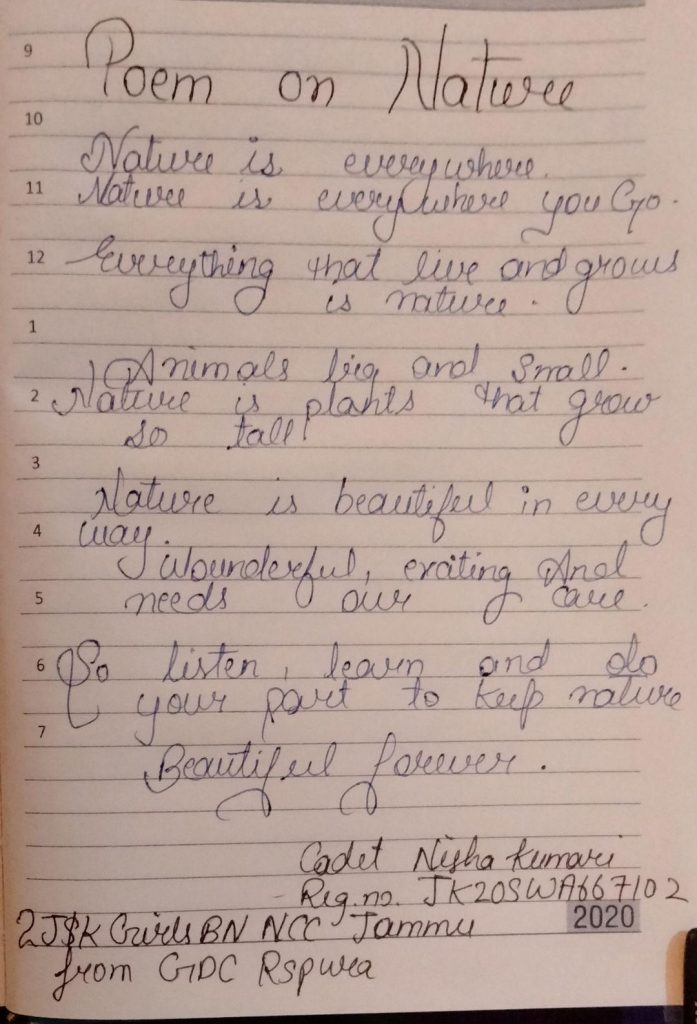 9
Poem on Nature
10
Nature is everywhere.
11
Nature is everywhere you Go.
12
Everything that live and grows
is nature.
1
Animals big and small.
2
Nature is plants that grow
so tall!
3
Nature is beautiful in every
4
way.
Wounderful, exciting And
5
needs our care.
6
So listen, learn and do
your part to keep nature
7
Beautiful forever.
Cadet Nisha Kumari
Reg.no. JK20SWA667102
2J&K Girls BN NCC Jammu
2020
from GDC Rspura